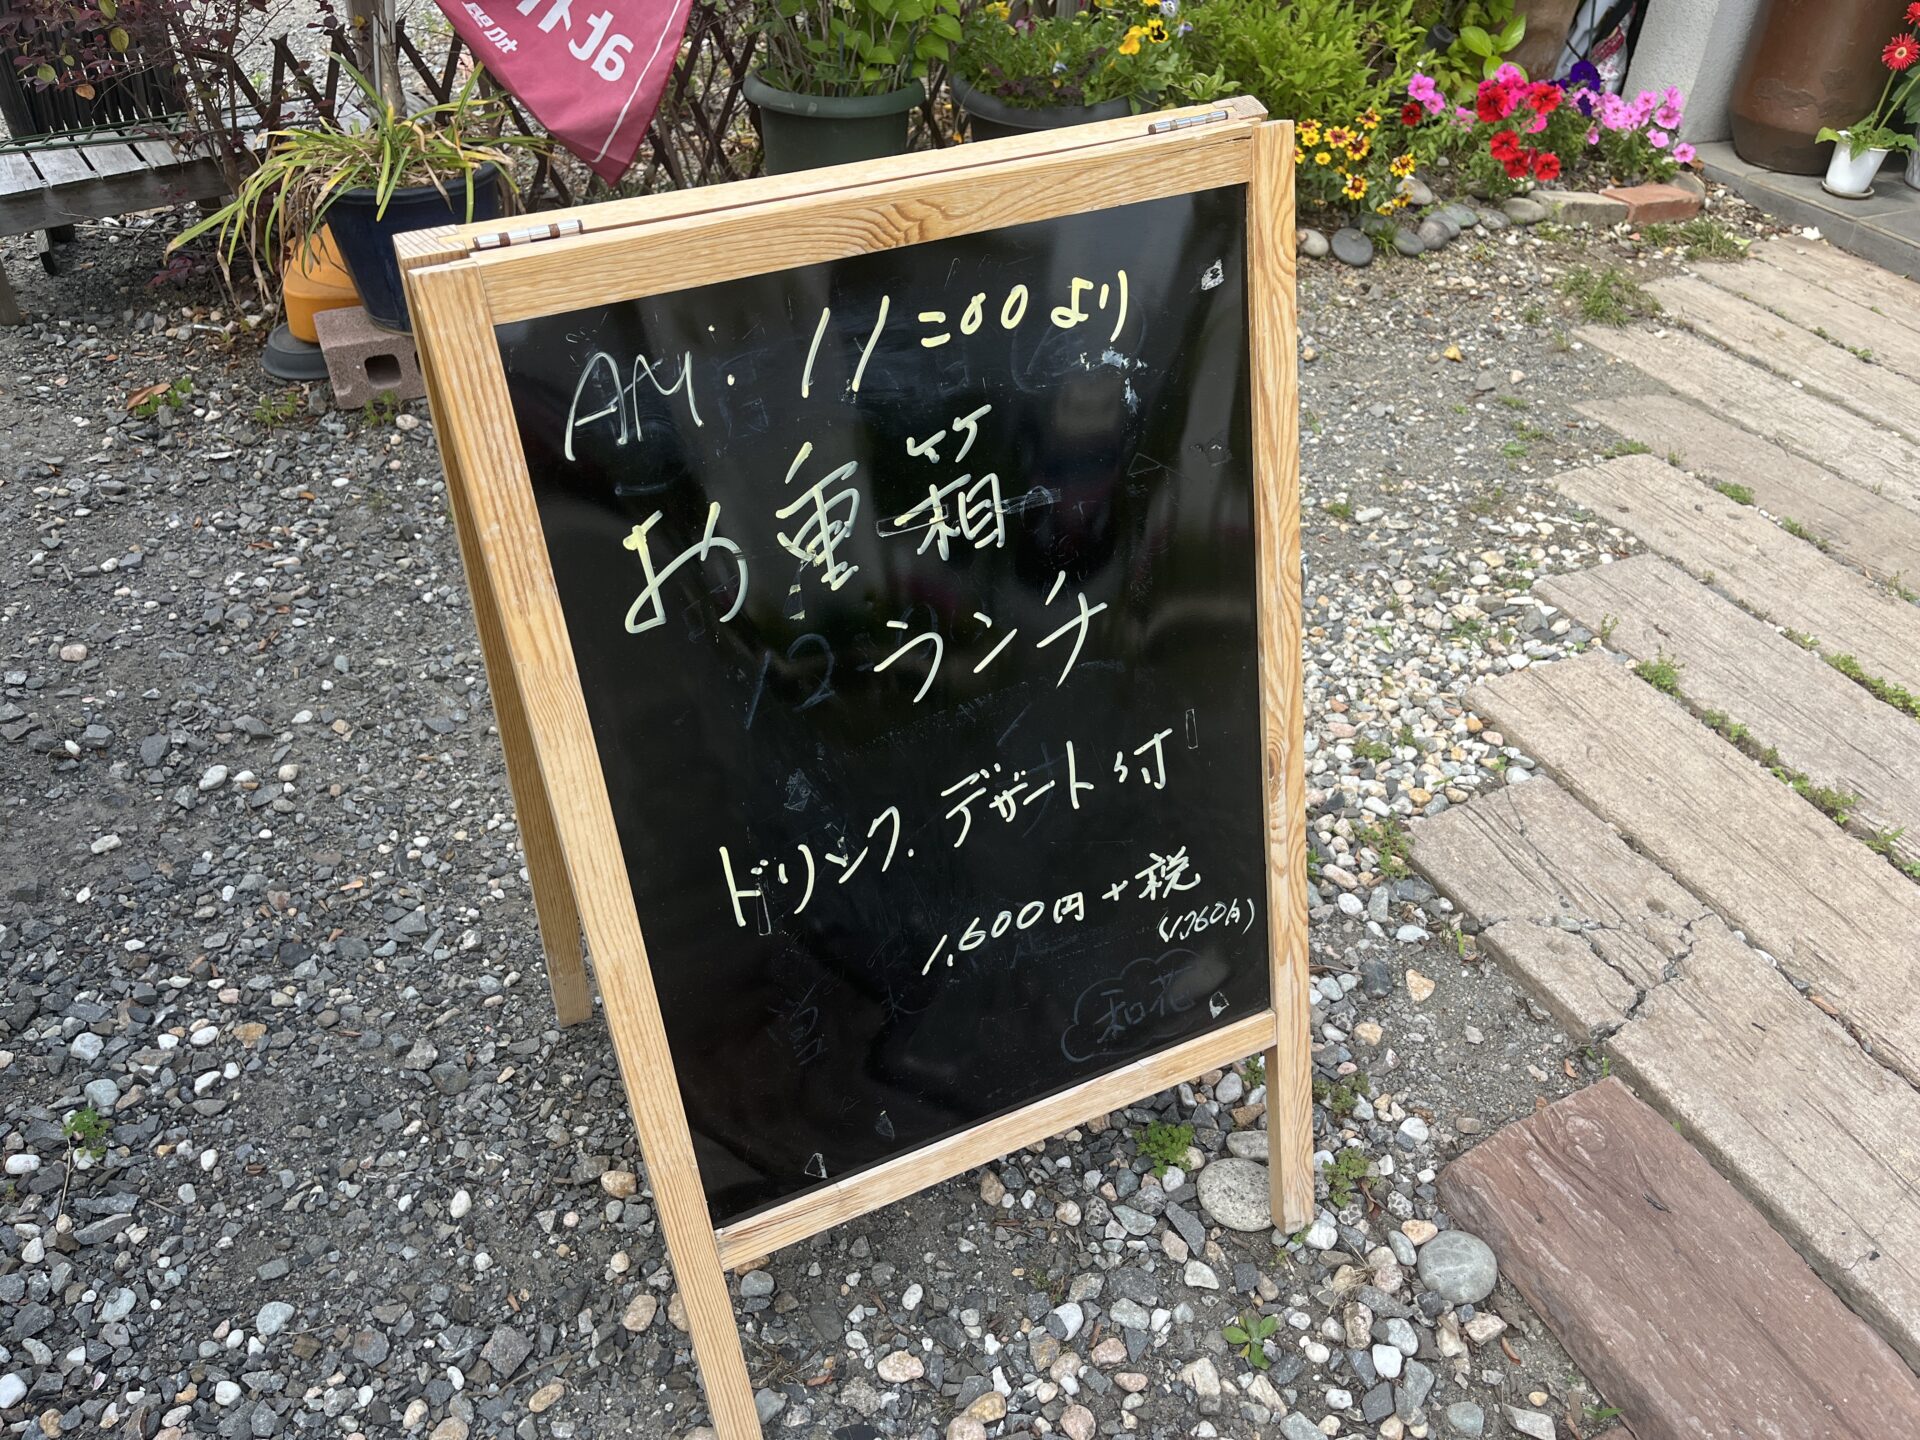 AM. 11:00より
お重箱
ランチ
ドリンク.デザート付
1,600円+税
(1,760円)
和花